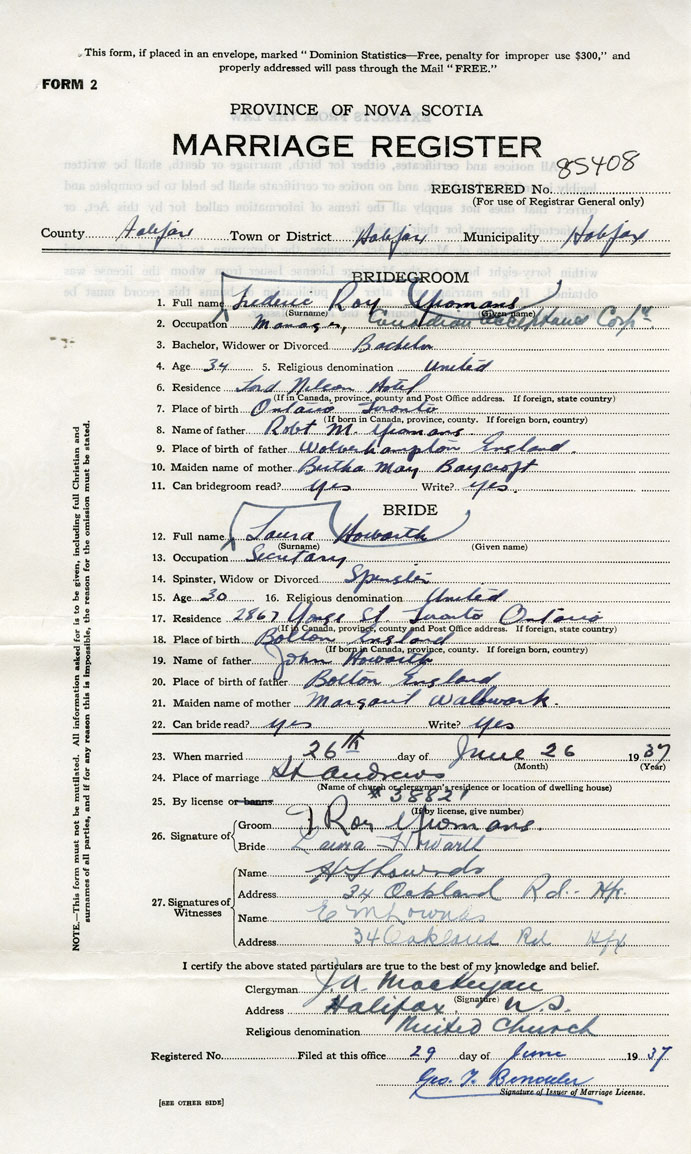 This form, if placed in an envelope, marked "Dominion Statistics—Free, penalty for improper use $300," and
properly addressed will pass through the Mail "FREE."
FORM 2
PROVINCE OF NOVA SCOTIA
MARRIAGE REGISTER
85408
REGISTERED No.
(For use of Registrar General only)
County Halifax Town or District Halifax Municipality Halifax
BRIDEGROOM
1. Full name Frederic Roy Yeomans
(Surname) (Given name)
2. Occupation Manager, Canadian Acceptance Corp'n
3. Bachelor, Widower or Divorced Bachelor
4. Age 34 5. Religious denomination United
6. Residence Lord Nelson Hotel
(If in Canada, province, county and Post Office address. If foreign, state country)
7. Place of birth Ontario Toronto
(If born in Canada, province, county. If foreign born, country)
8. Name of father Robt M. Yeomans
9. Place of birth of father Wolverhampton England.
10. Maiden name of mother Bertha May Baycroft
11. Can bridegroom read? yes Write? yes.
BRIDE
12. Full name Laura Howarth
(Surname) (Given name)
13. Occupation Secretary
14. Spinster, Widow or Divorced Spinster
15. Age 30 16. Religious denomination United
17. Residence 2867 Yonge St. Toronto Ontario
(If in Canada, province, county and Post Office address. If foreign, state country)
18. Place of birth Bolton England
(If born in Canada, province, county. If foreign born, country)
19. Name of father John Howarth
20. Place of birth of father Bolton England
21. Maiden name of mother Margaret Wallwork.
22. Can bride read? yes Write? yes
23. When married 26th day of June 26 1937
(Month) (Year)
24. Place of marriage St Andrews
(Name of church or clergyman's residence or location of dwelling house)
25. By license or banns # 38821
(If by license, give number)
26. Signature of Groom F Roy Yeomans.
Bride Laura Howarth
27. Signatures of Witnesses
Name
Address 34 Oakland Rd. Hfx.
Name
Address 34 Oakland Rd Hfx
I certify the above stated particulars are true to the best of my knowledge and belief.
Clergyman J.A. MacKeigan
(Signature)
Address Halifax, N.S.
Religious denomination United Church
Registered No. Filed at this office 29 day of June 1937
Geo. T.
Signature of Issuer of Marriage License.
[SEE OTHER SIDE]
NOTE.—This form must not be mutilated. All information asked for is to be given, including full Christian and
surnames of all parties, and if for any reason this is impossible, the reason for the omission must be stated.